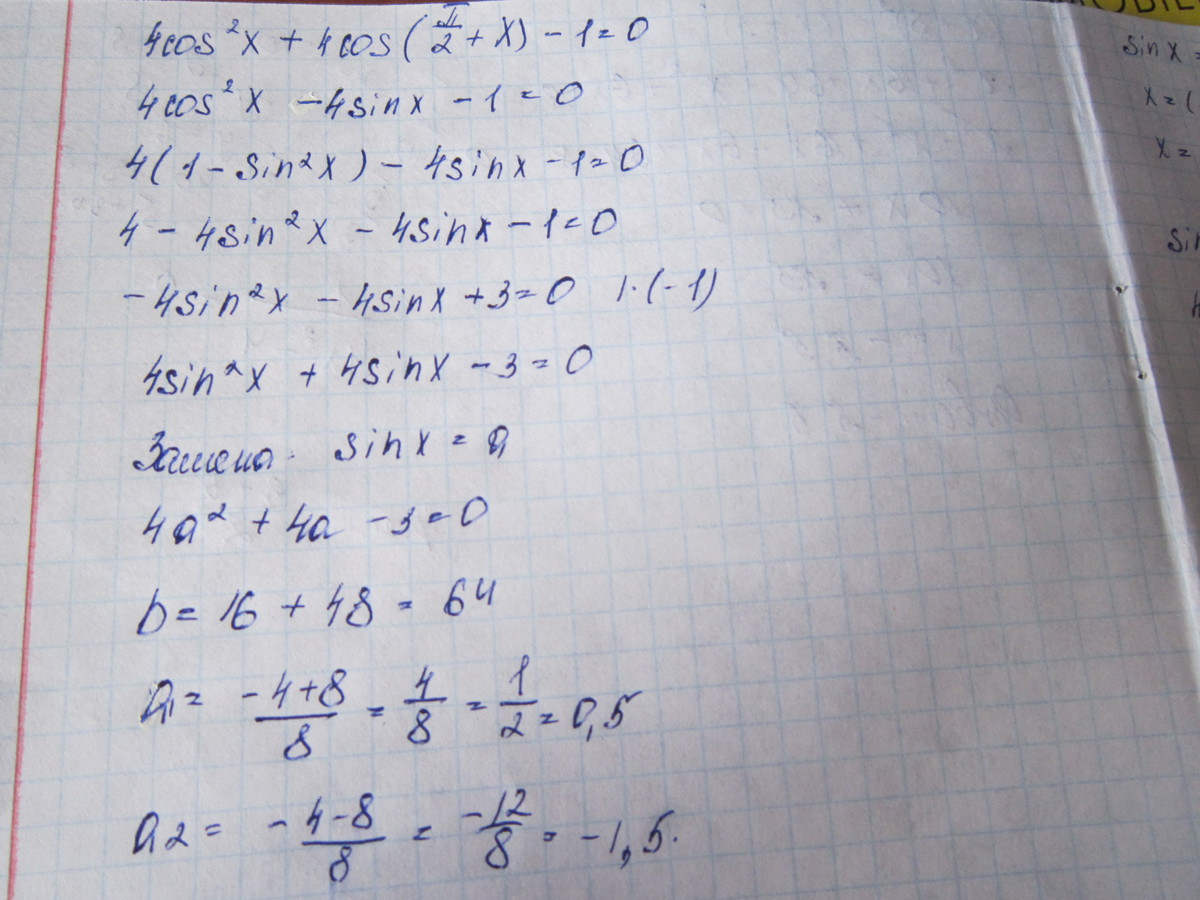 4cos²x + 4cos(π/2 + x) - 1 = 0
4cos²x - 4sinx - 1 = 0
4(1 - sin²x) - 4sinx - 1 = 0
4 - 4sin²x - 4sinx - 1 = 0
-4sin²x - 4sinx + 3 = 0 |·(-1)
4sin²x + 4sinx - 3 = 0
Замена. sinx = a
4a² + 4a - 3 = 0
D = 16 + 48 = 64
a₁ = (-4+8)/8 = 4/8 = 1/2 = 0,5
a2 = -(4-8)/8 = -12/8 = -1,5.
sin x =
x = (
x =
sin